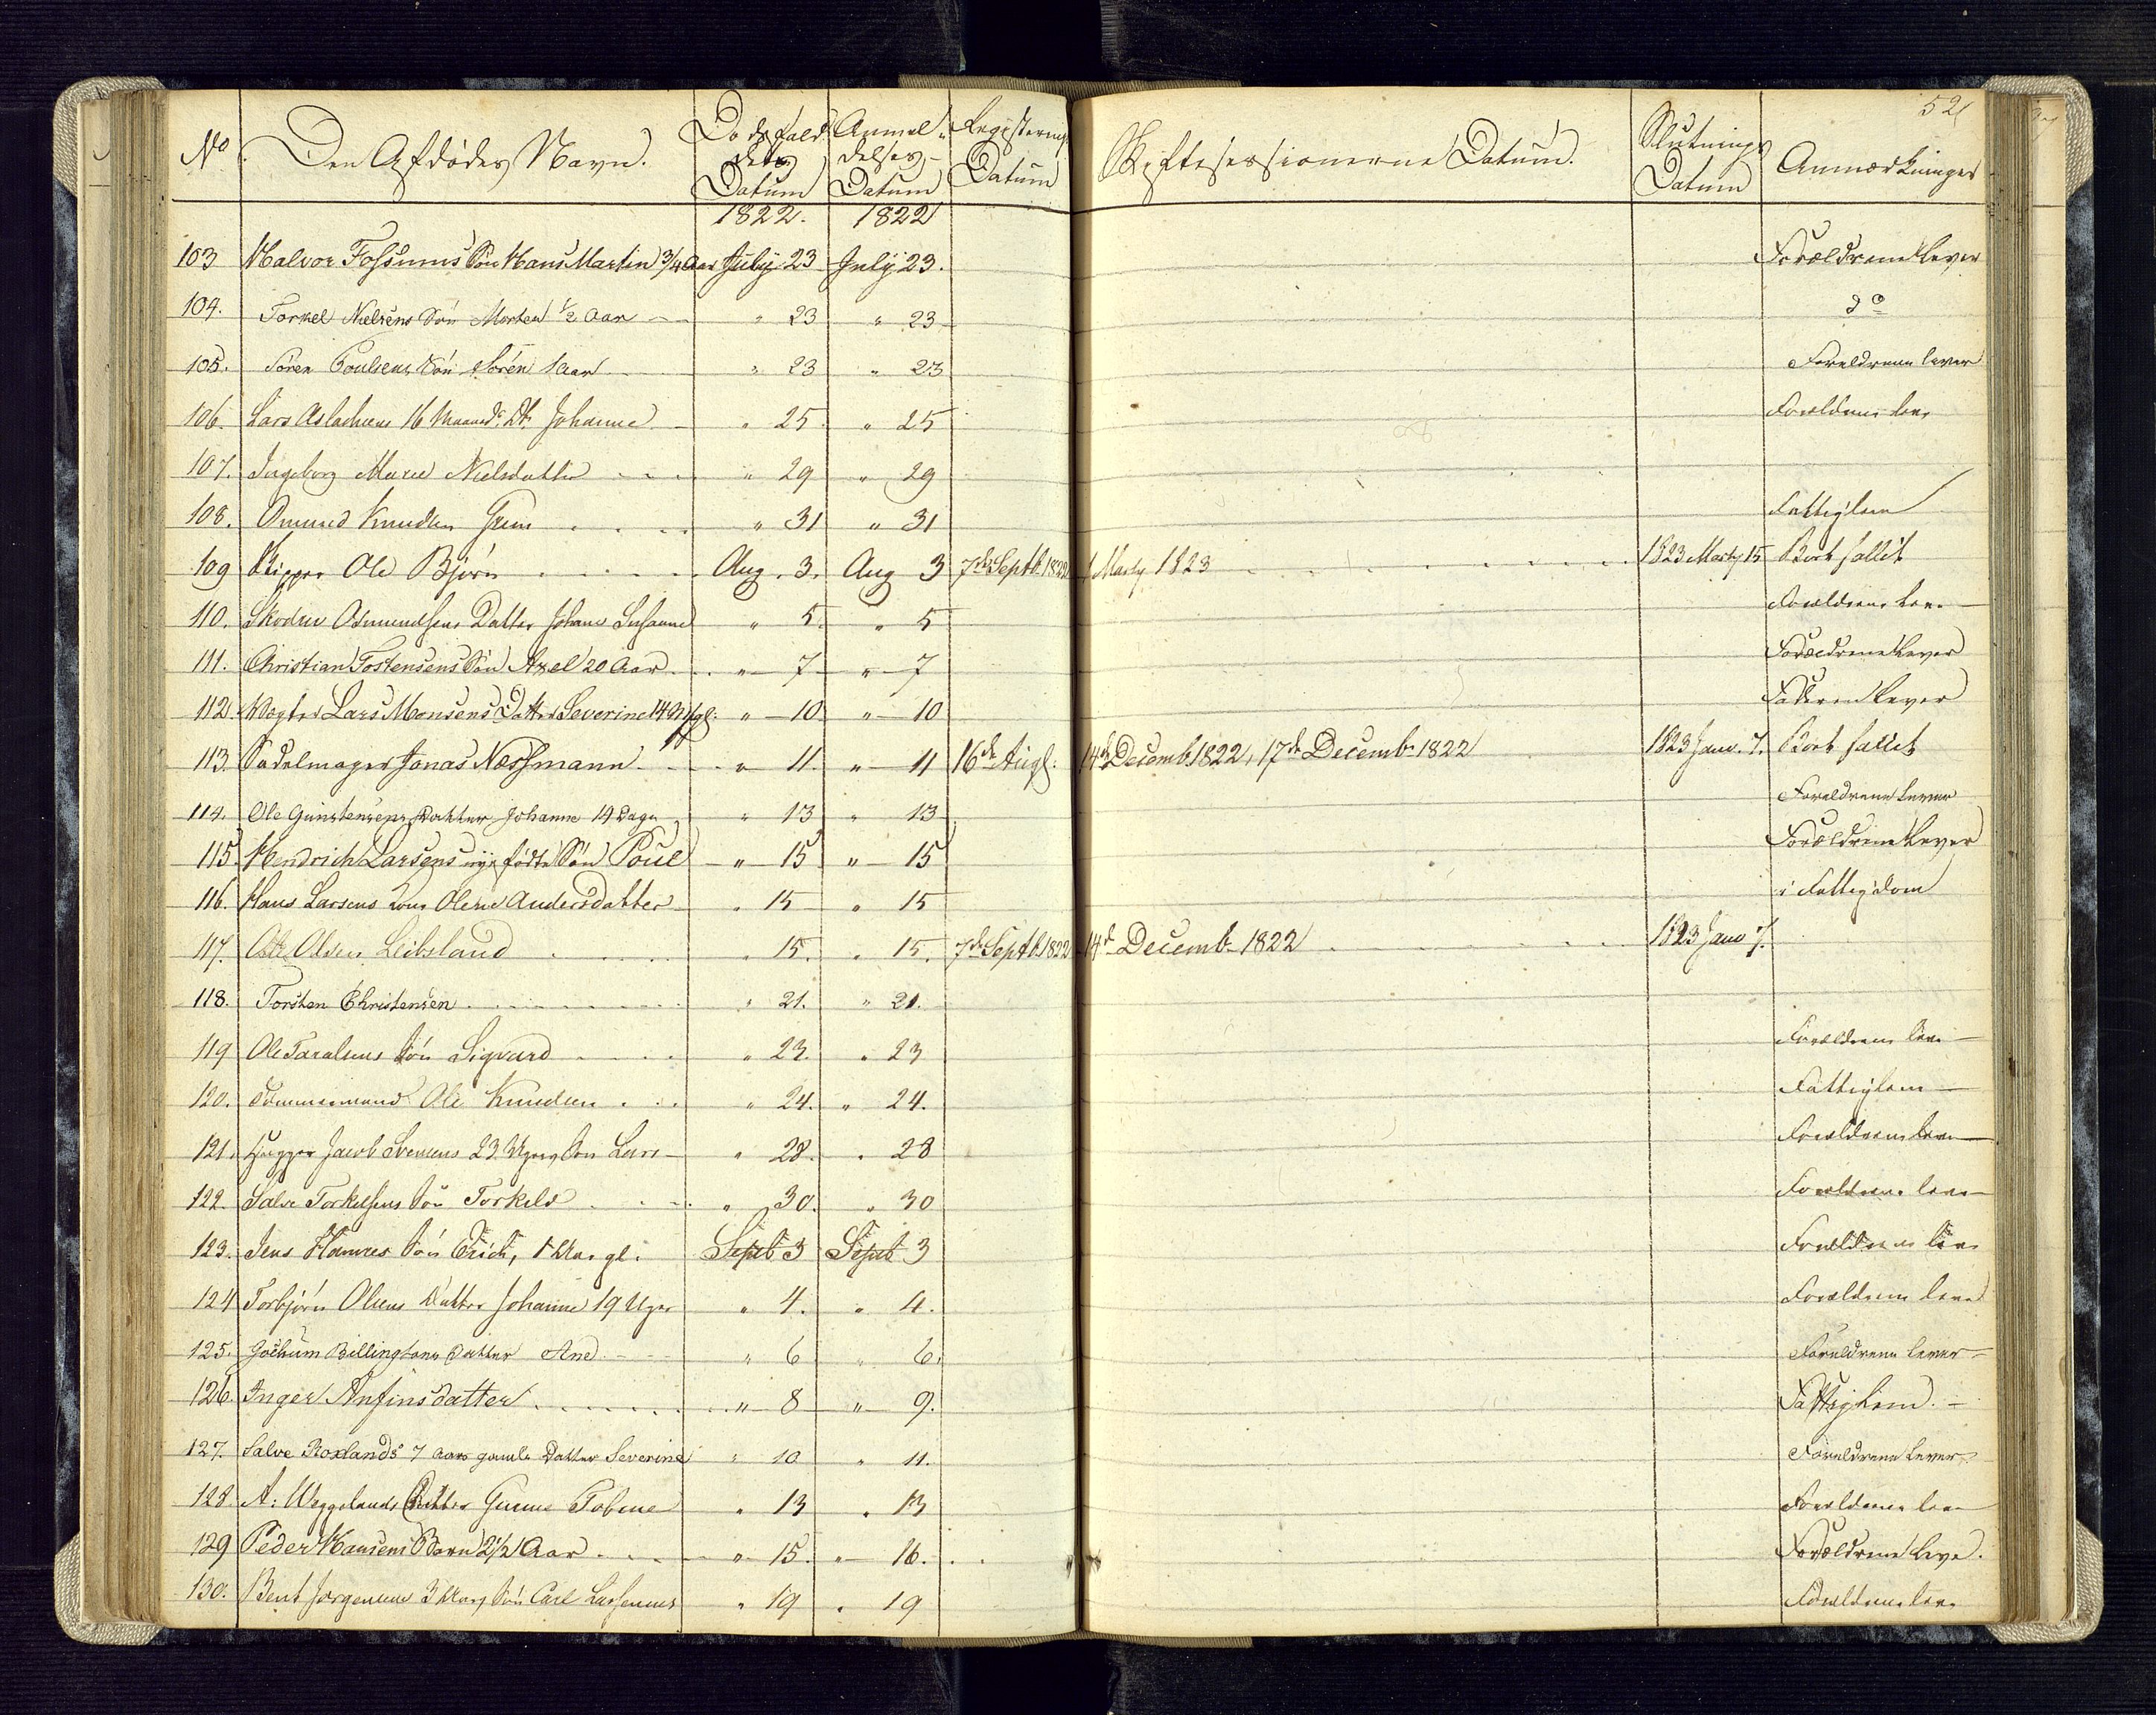 52
No. Den Afdødes Navn. Dødsfaldets Datum Anmeldelses Datum Registerings Datum Skiftesessionerne Datum. Slutnings Datum Anmærkninger
1822. 1822
103 Halvor Fossums Søn Hans Martin 3/4 Aar July 23 July 23. Forældrene Lever
104. Torkel Nielsens Søn Morten 1/2 Aar " 23 " 23 do
105. Søren Poulsens Søn Søren 1 Aar " 23 " 23 Foreldrene lever
106. Lars Aslachsens 16 Maand: Dt. Johanne " 25 " 25 Forældrene leve
107. Ingeborg Marie Nielsdatter " 29 " 29
108. Omund Knudsen Grim " 31 " 31 Fattiglem
109 Skipper Ole Bjørn Aug. 3. Aug 3 7de Septb. 1822 1 Marty 1823 1823 Marty 15 Bort fallit
110. Asmundsens Datter Johane Susanne " 5. " 5 Forældrene leve
111. Christian Tostensens Søn Axel 20 Aar " 7 " 7 Forældrene Lever
112. Vægter Lars Monsens Datter Severine 14 gl: " 10 " 10 Faderen Lever
113. Sadelmager Jonas Næssmann " 11. " 11 16de Augs: 14de Decemb. 1822, 17de Decemb. 1822 1823 Janv. 7. Bort fallit
114. Ole Gunstensens Datter Johanne 14 Dage " 13 " 13 Foreldrene Lever
115. Hendrich Larsens nyefødte Søn Poul " 15 " 15 Forældrene Lever
116. Hans Larsens Kone Olene Andersdatter " 15 " 15 i Fattigdom
117. Ole Olsen Leibsland " 15. " 15. 7de Septb. 1822 14de Decemb. 1822 1823 Janv 7.
118. Torsten Christensen " 21. " 21.
119 Ole Taralsens Søn Sigvard " 23. " 23 Forældrene leve
120. Tømmermand Ole Knudsen " 24. " 24. Fattiglem
121. Jacob Svensens 23 Uger Søn Lars " 28. " 28 Forældrene leve
122. Salve Torkelsens Søn Torkild " 30. " 30 Forældrene leve
123. Jens Hannes Søn Erich, 1 Aar gl. Septb 3 Septb 3 Forældrene leve
124 Torbjørn Olsens Datter Johanne 19 Uger " 4. " 4. Forældrene leve
125. Jochum Billingtons Datter Ane " 6 " 6. Foreldrene lever
126. Inger Anfinsdatter " 8 " 9. Fattiglem.
127. Salve Roslands 7 Aars gamle Datter Severine " 10 " 11. Foreldrene Lever
128. A: Weggelands Datter Gunne Tobine " 13 " 13 Forældrene leve
129 Peder Hansens Barn 2 1/2 Aar " 15. " 16. Forældrene Leve.
130. Bent Jørgensens 3 Aars Søn Carl " 19 " 19 Forældrene leve